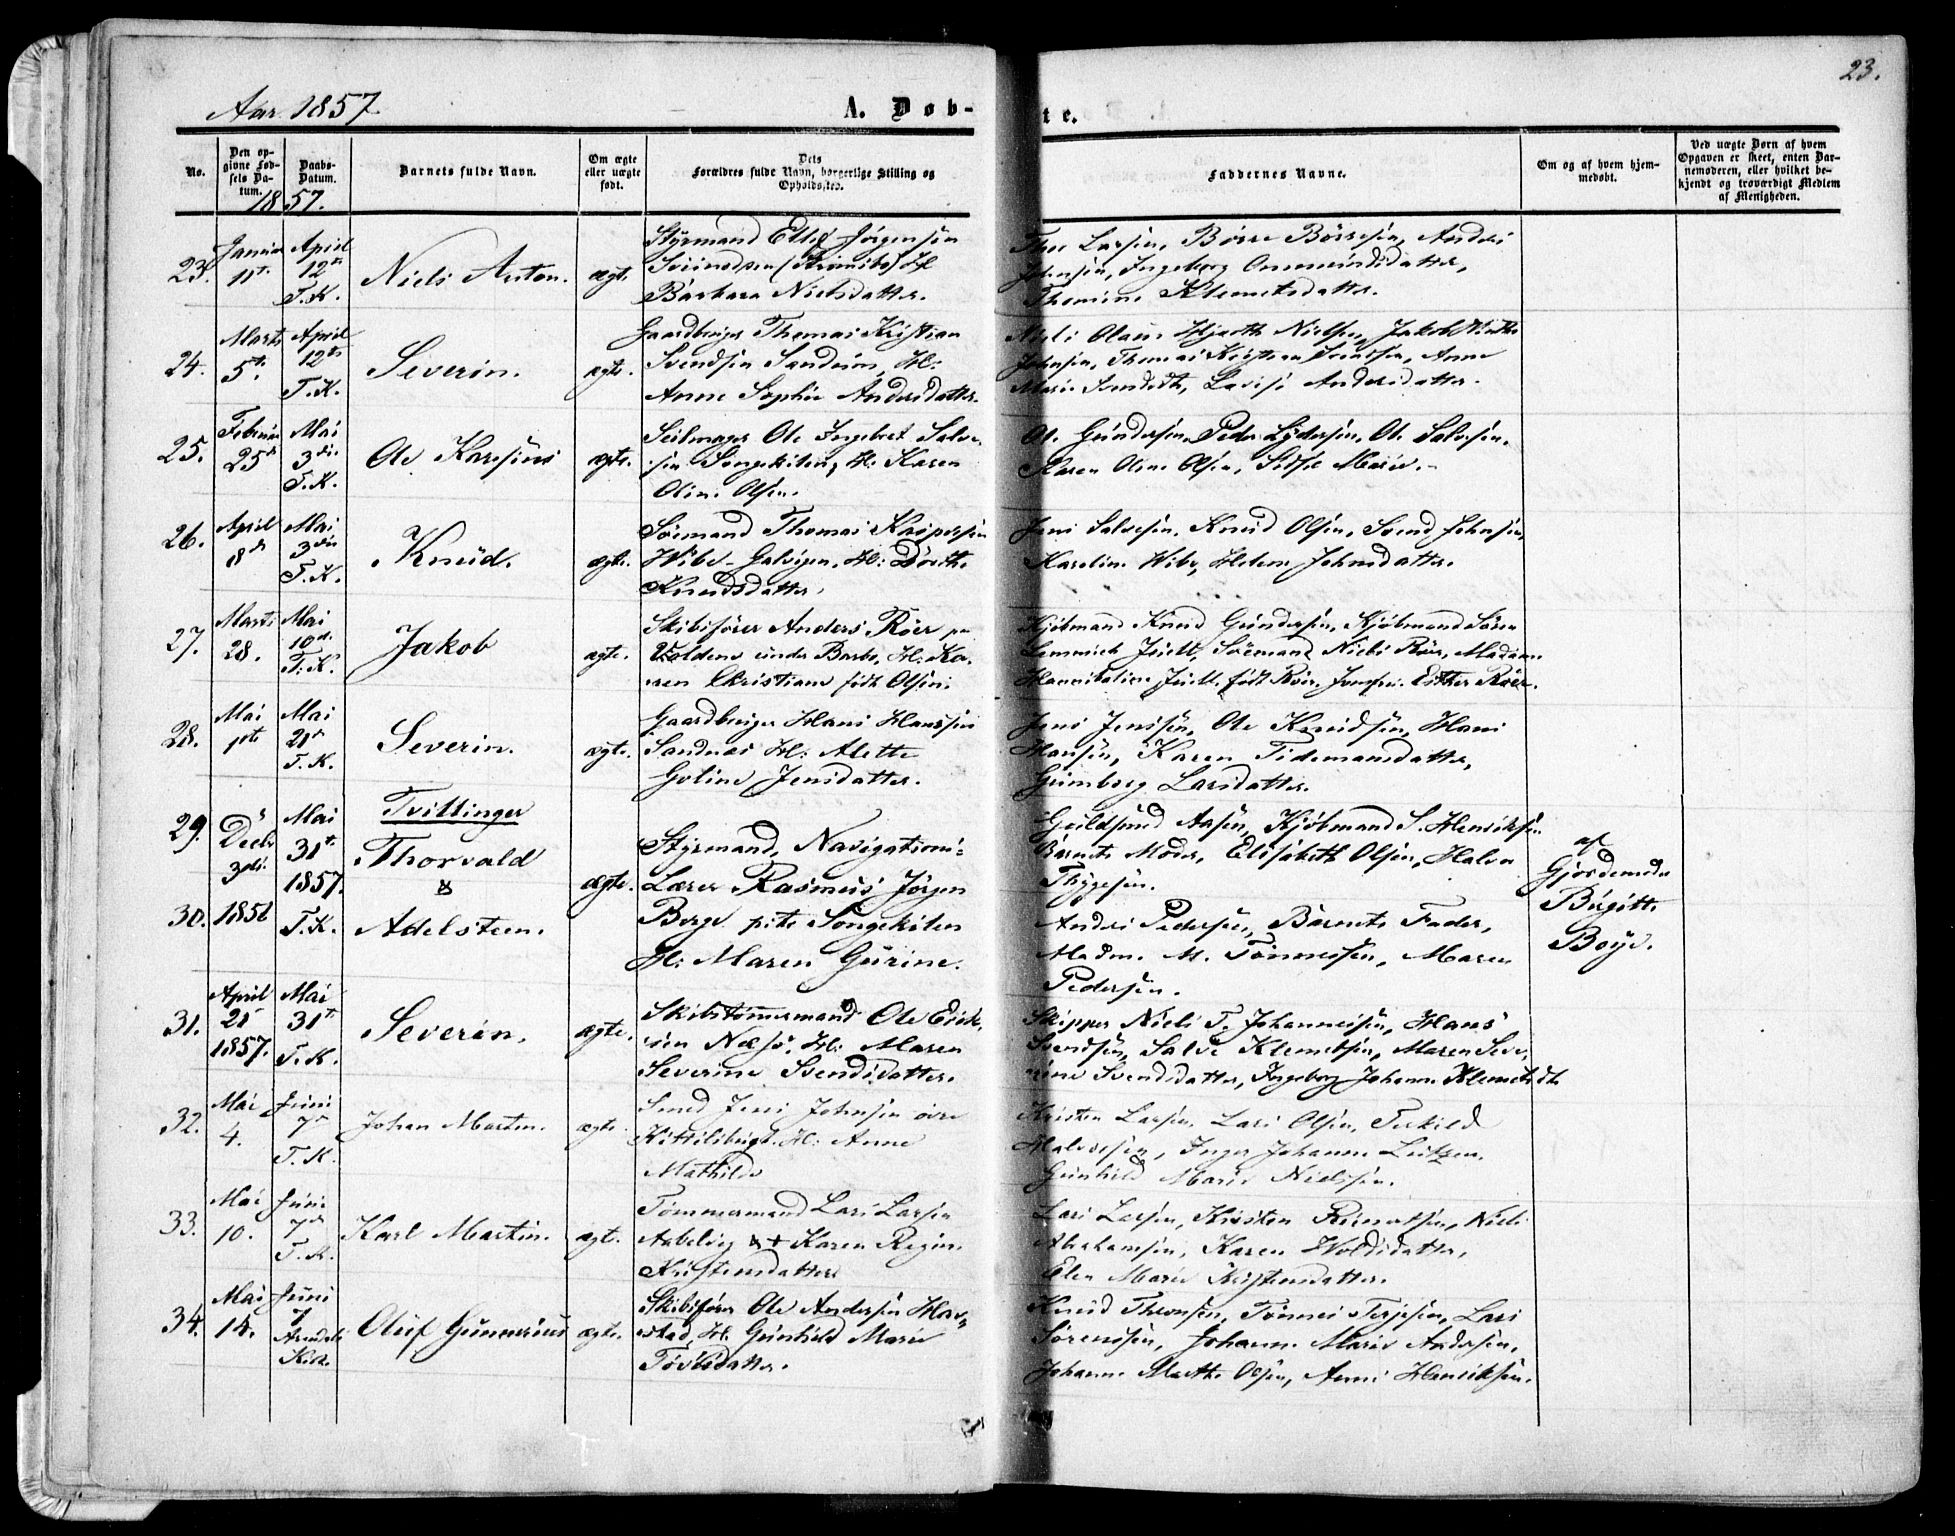 23.
Aar 1857
A. Døb-
te.
No.
Den op-
givne Fød-
sels Da-
tum.
Daabs-
Datum.
Barnets fulde Navn.
Om ægte
eller uægte
født.
Dets
Forældres fulde Navn, borgerlige Stilling og
Opholdssted.
Faddernes Navne.
Om og af hvem hjem-
medøbt.
Ved uægte Børn af hvem
Opgaven er skeet, enten Bar-
nemoderen, eller hvilket be-
kjendt og troværdigt Medlem
af Menigheden.
1857.
23. Januar 11te April 12te T.K. Niels Anton. ægt.
Styrmand Ellef Jørgensen
Barbara Nielsdatter.
Lassen, Børre Børresen, Anders
Johnsen, Ingeborg
Thomine Klemetsdatter.
24. Marts 5te April 12te T.K. Severin. ægte.
Gaardbruger Thomas Kristian
Svendsen Sandum, H:
Anne Sophie Andersdatter.
Niels Olaus Hjorth Nielsen, Jakob
Johnsen, Thomas Kristian Svendsen, Anne
Marie Svendsdt, Lovise Andersdatter.
25. Februar 25de Mai 3die T.K. Ole Karesius ægte.
Seilmager Ole Ingebret Salve-
sen Songekilen, H: Karen
Oline Olsen.
Ole Gundersen, Peder Lydersen, Ole Salvesen,
Karen Oline Olsen, Sidsel Marie.
26. April 8de Mai 3die T.K. Knud. ægte.
Sømand Thomas Kaspersen
Wibe Galvigen, H: Dorthe
Knudsdatter.
Jens Salvesen, Knud Olsen, Svend Johnsen,
Karoline Wibe, Helene Johnsdatter.
27. Marts 28. Mai 10de T.K. Jakob ægte.
Skibsfører Anders Röer paa
Voldene under Barbo, H: Ka-
ren Christiane født Olsen.
Kjøbmand Knud Gundersen, Kjøbmand Søren
Lemmich Juell, Sømand Niels Röer, Madam
Hannibaline Juell født Röer, Jomfru Esther Röer.
28. Mai 1ste Mai 21de T.K. Severin. ægte.
Gaardbruger Hans Hanssen
Sandnæs H: Alette
Goline Jensdatter.
Jens Jenssen, Ole Knudsen, Hans
Hansen, Karen Tidemansdatter,
Gunborg Larsdatter.
29. Decbr 3die 1856 Mai 31te 1857. T.K. Tvillinger
Thorvald
&
30. Adelsteen. ægte.
Styrmand, Navigations-
Lærer Rasmus Jørgen
Berge Songekilen
H: Maren Gurine.
Guldsmed Aasen, Kjøbmand S. Henriksen
Barnets Moder, Elisabeth Olsen, Halvor
Thygesen.
Anders Pedersen, Barnets Fader,
Madm. M. Tönnesen, Maren
Pedersen.
af
Gjordemoder
Birgitte
Boye.
31. April 21 1857. Mai 31te T.K. Severin. ægte.
Skibstømmermand Ole Erik-
sen Næsø, H: Maren
Severine Svendsdatter.
Skipper Niels T. Johannesen, Hans
Svendsen, Salve Klemetsen, Maren Seve-
rine Svendsdatter, Ingeborg Johanne Klemetsdt.
32. Mai 4. Juni 7de T.K. Johan Martin. ægte
Smed Jens Johnsen øvre
Kittelsbugt. H: Anne
Mathilde
Kristen Larsen, Lars Olsen, Terkild
Halvorsen, Inger Johanne
Gunhild Marie Nielsen.
33. Mai 10. Juni 7de T.K. Karl Martin. ægte.
Tømmermand Lars Larsen
Karen Regine
Kristensdatter
Lars Larsen, Kristen Niels
Abrahamsen, Karen
Elen Marie Kristensdatter.
34. Mai 14. Juni 7 Arendals Kirk. Oluf Gunnerius ægte.
Skibsfører Ole Andersen Hav-
stad, H: Gunhild Marie
Knud Thronsen, Tönnes Terjesen, Lars
Sørenssen, Johanne Marie Andersen,
Johanne Marthe Olsen, Anne Henriksen.